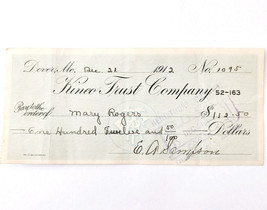 Dover, Me. Dec 21 1912 No. 1095
Kineo Trust Company 52-163
Pay to the
order of Mary Rogers $112.50
One Hundred Twelve and 50/100 Dollars
E. A. Sampson